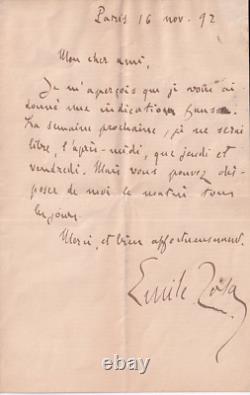 Paris 16 nov. 92
Mon cher ami,
Je m'aperçois que je vous ai
donné une indication fausse.
La semaine prochaine, je ne serai
libre, l'après-midi, que jeudi et
vendredi. Mais vous pouvez dis-
poser de moi le matin tous
les jours.
Merci, et bien affectueusement.
Emile Zola